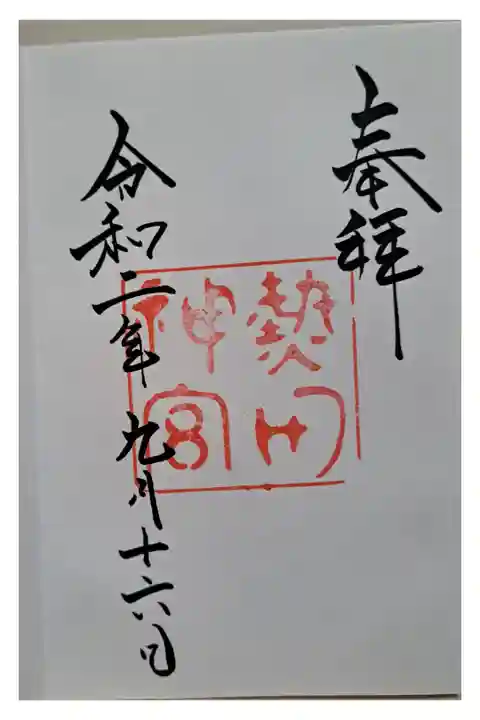 上奉拝
熱田
神宮
令和二年九月十六日